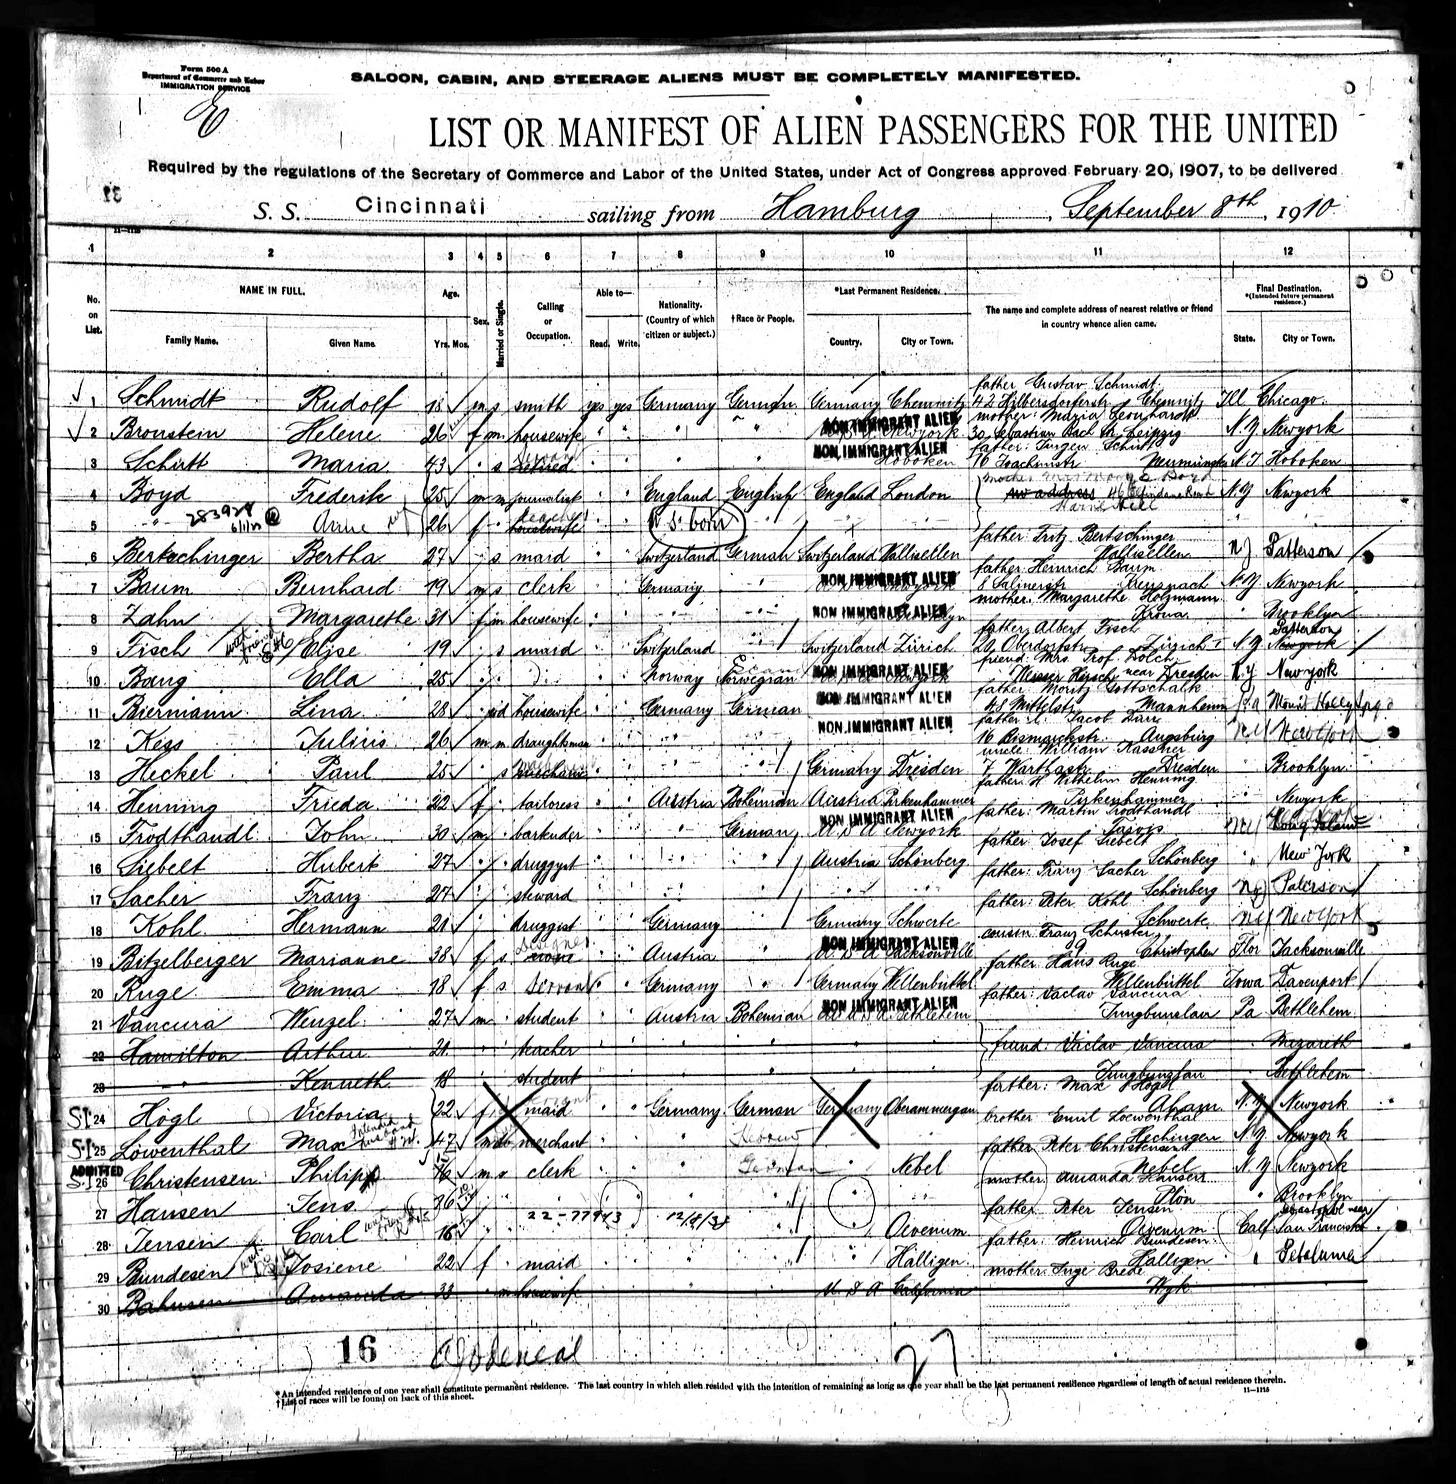 Form 500 A
Department of Commerce and Labor
IMMIGRATION SERVICE
E
SALOON, CABIN, AND STEERAGE ALIENS MUST BE COMPLETELY MANIFESTED.
LIST OR MANIFEST OF ALIEN PASSENGERS FOR THE UNITED
Required by the regulations of the Secretary of Commerce and Labor of the United States, under Act of Congress approved February 20, 1907, to be delivered
S. S. Cincinnati sailing from Hamburg, September 8th, 1910
1 2 3 4 5 6 7 8 9 10 11 12
No. on List. NAME IN FULL. Family Name. Given Name. Age. Yrs. Mos. Sex. Married or Single. Calling or Occupation. Able to— Read. Write. Nationality. (Country of which citizen or subject.) †Race or People. *Last Permanent Residence. Country. City or Town. The name and complete address of nearest relative or friend in country whence alien came. Final Destination. *(Intended future permanent residence.) State. City or Town.
1 Schmidt Rudolf 18 m s smith yes yes Germany German Germany Chemnitz father Gustav Schmidt 42 Hilbersdorferstr Chemnitz Ill Chicago
2 Bronstein Helene 26 f m housewife " " " " NON IMMIGRANT ALIEN Newyork mother: Maria Leonhardt 30 Sebastian Bach Str Leipzig N.Y Newyork
3 Schirtt Maria 43 " s retired " " " " NON IMMIGRANT ALIEN Hoboken father: Jurgen Schirtt 76 Joachimstr N.J Hoboken
4 Boyd Frederik 25 m m journalist " " England English England London mother N.Y Newyork
5 " 283928 Anne 26 f " housewife " " U.S. born "
6 Bertschinger Bertha 27 " s maid " " Switzerland German Switzerland Wallisellen father: Fritz Bertschinger Wallisellen N.J Patterson
7 Baum Bernhard 19 m s clerk " " Germany " NON IMMIGRANT ALIEN father: Heinrich Baum 8 Salinerstr Kreuznach N.Y Newyork
8 Zahn Margarethe 31 f m housewife " " " " NON IMMIGRANT ALIEN mother: Margarethe Holzmann " Brooklyn
9 Fisch Elise 19 " s maid " " Switzerland " Switzerland Zürich father Albert Fisch 20 Oberdorfstr Zürich N.J Patterson
10 Bang Ella 25 " " " " " Norway Norwegian NON IMMIGRANT ALIEN friend: Mrs Prof Dolch Weisser Hirsch near Dresden N.Y Newyork
11 Biermann Lina 28 " housewife " " Germany German NON IMMIGRANT ALIEN father: Moritz Gottschalk Mittelstr Mannheim Pa
12 Kiss Julius 26 m m draughtsman " " " " NON IMMIGRANT ALIEN 16 Bismarckstr Augsburg NY New York
13 Heckel Paul 25 " s " " " " Germany Dresden uncle: William Kassner 7 Warthastr Dresden " Brooklyn
14 Henning Frieda 22 f " tailoress " " Austria Bohemian Austria Pirkenhammer father: H Wilhelm Henning Pirkenhammer " Newyork
15 Frodthandl John 30 m " barkeeper " " " German NON IMMIGRANT ALIEN U S A Newyork father: Martin Frodthandl NY Long Island
16 Siebelt Hubert 27 " " druggist " " " " Austria Schönberg father: Josef Siebelt Schönberg " New York
17 Sacher Franz 27 " " steward " " " " " " father: Franz Sacher Schönberg NJ Paterson
18 Kohl Hermann 21 " " druggist " " Germany " Germany Schwerte father: Peter Kohl Schwerte NY New York
19 Bitzelberger Marianne 38 f s none " " Austria " NON IMMIGRANT ALIEN U S A Jacksonville cousin Franz Schuster Christophen Flor Jacksonville
20 Ruge Emma 18 f s servant " " Germany " Germany Wellenbüttel father: Hans Ruge Wellenbüttel Iowa Davenport
21 Vancura Wenzel 27 m " student " " Austria Bohemian NON IMMIGRANT ALIEN U S A Bethlehem father: Vaclav Vancura Jungbunzlau Pa Bethlehem
22 Hamilton Arthur 21 " " teacher " " " " " " friend: Vaclav Vancura " Nazareth
23 " Kenneth 18 student Jungbunzlau Bethlehem
SI 24 Högl Victoria 22 f " maid " " Germany German Germany Oberammergau father: Max Högl N.Y Newyork
SI 25 Löwenthal Max 47 m merchant " " " Hebrew " " brother Emil Loewenthal Hechingen N.Y Newyork
ADMITTED SI 26 Christensen Philipp 16 m s clerk " " " German " Nebel father Peter Christensen Nebel N.Y Newyork
27 Hansen Jens 36 22-77943 12/9/38 mother: Amanda Hansen Plön " Brooklyn
28 Jensen Carl 16 Oevenum father Peter Jensen Oevenum Calif San Francisco
29 Bundesen Josiene 22 f " maid " " " " Halligen father: Heinrich Bundesen Halligen " Petaluma
30 Bahnsen Amanda 33 " m housewife " " " " U S A California mother: Inge Brede Wyk
16 27
*An intended residence of one year shall constitute permanent residence. The last country in which alien resided with the intention of remaining as long as one year shall be the last permanent residence regardless of length of actual residence therein.
†List of races will be found on back of this sheet.
11—1215